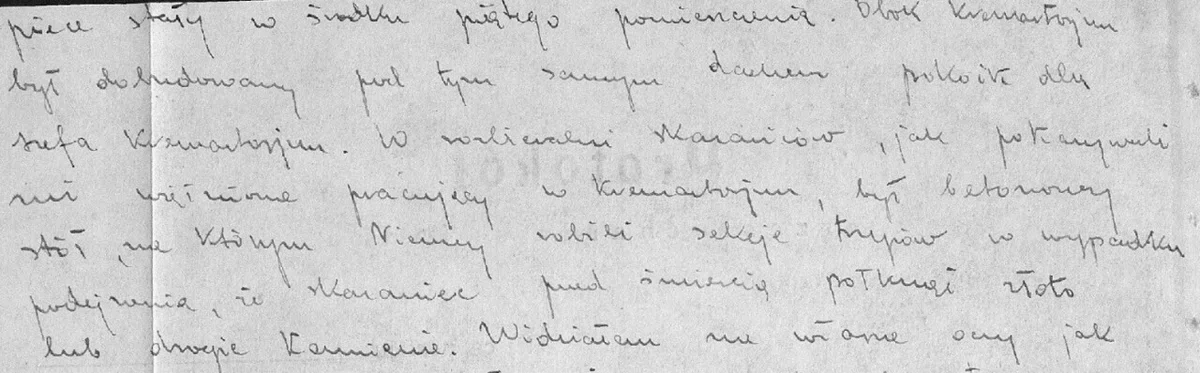 piece stały w środku piątego pomieszczenia. Obok krematorjum
był dobudowany pod tym samym dachem pokoik dla
szefa krematorjum. W rozbieralni skazańców, jak pokazywali
mi więźniowie pracujący w krematorjum, był betonowy
stół, na którym Niemcy robili sekcje trupów w wypadku
podejrzenia, że skazaniec przed śmiercią połknął złoto
lub drogie kamienie. Widziałem na własne oczy jak